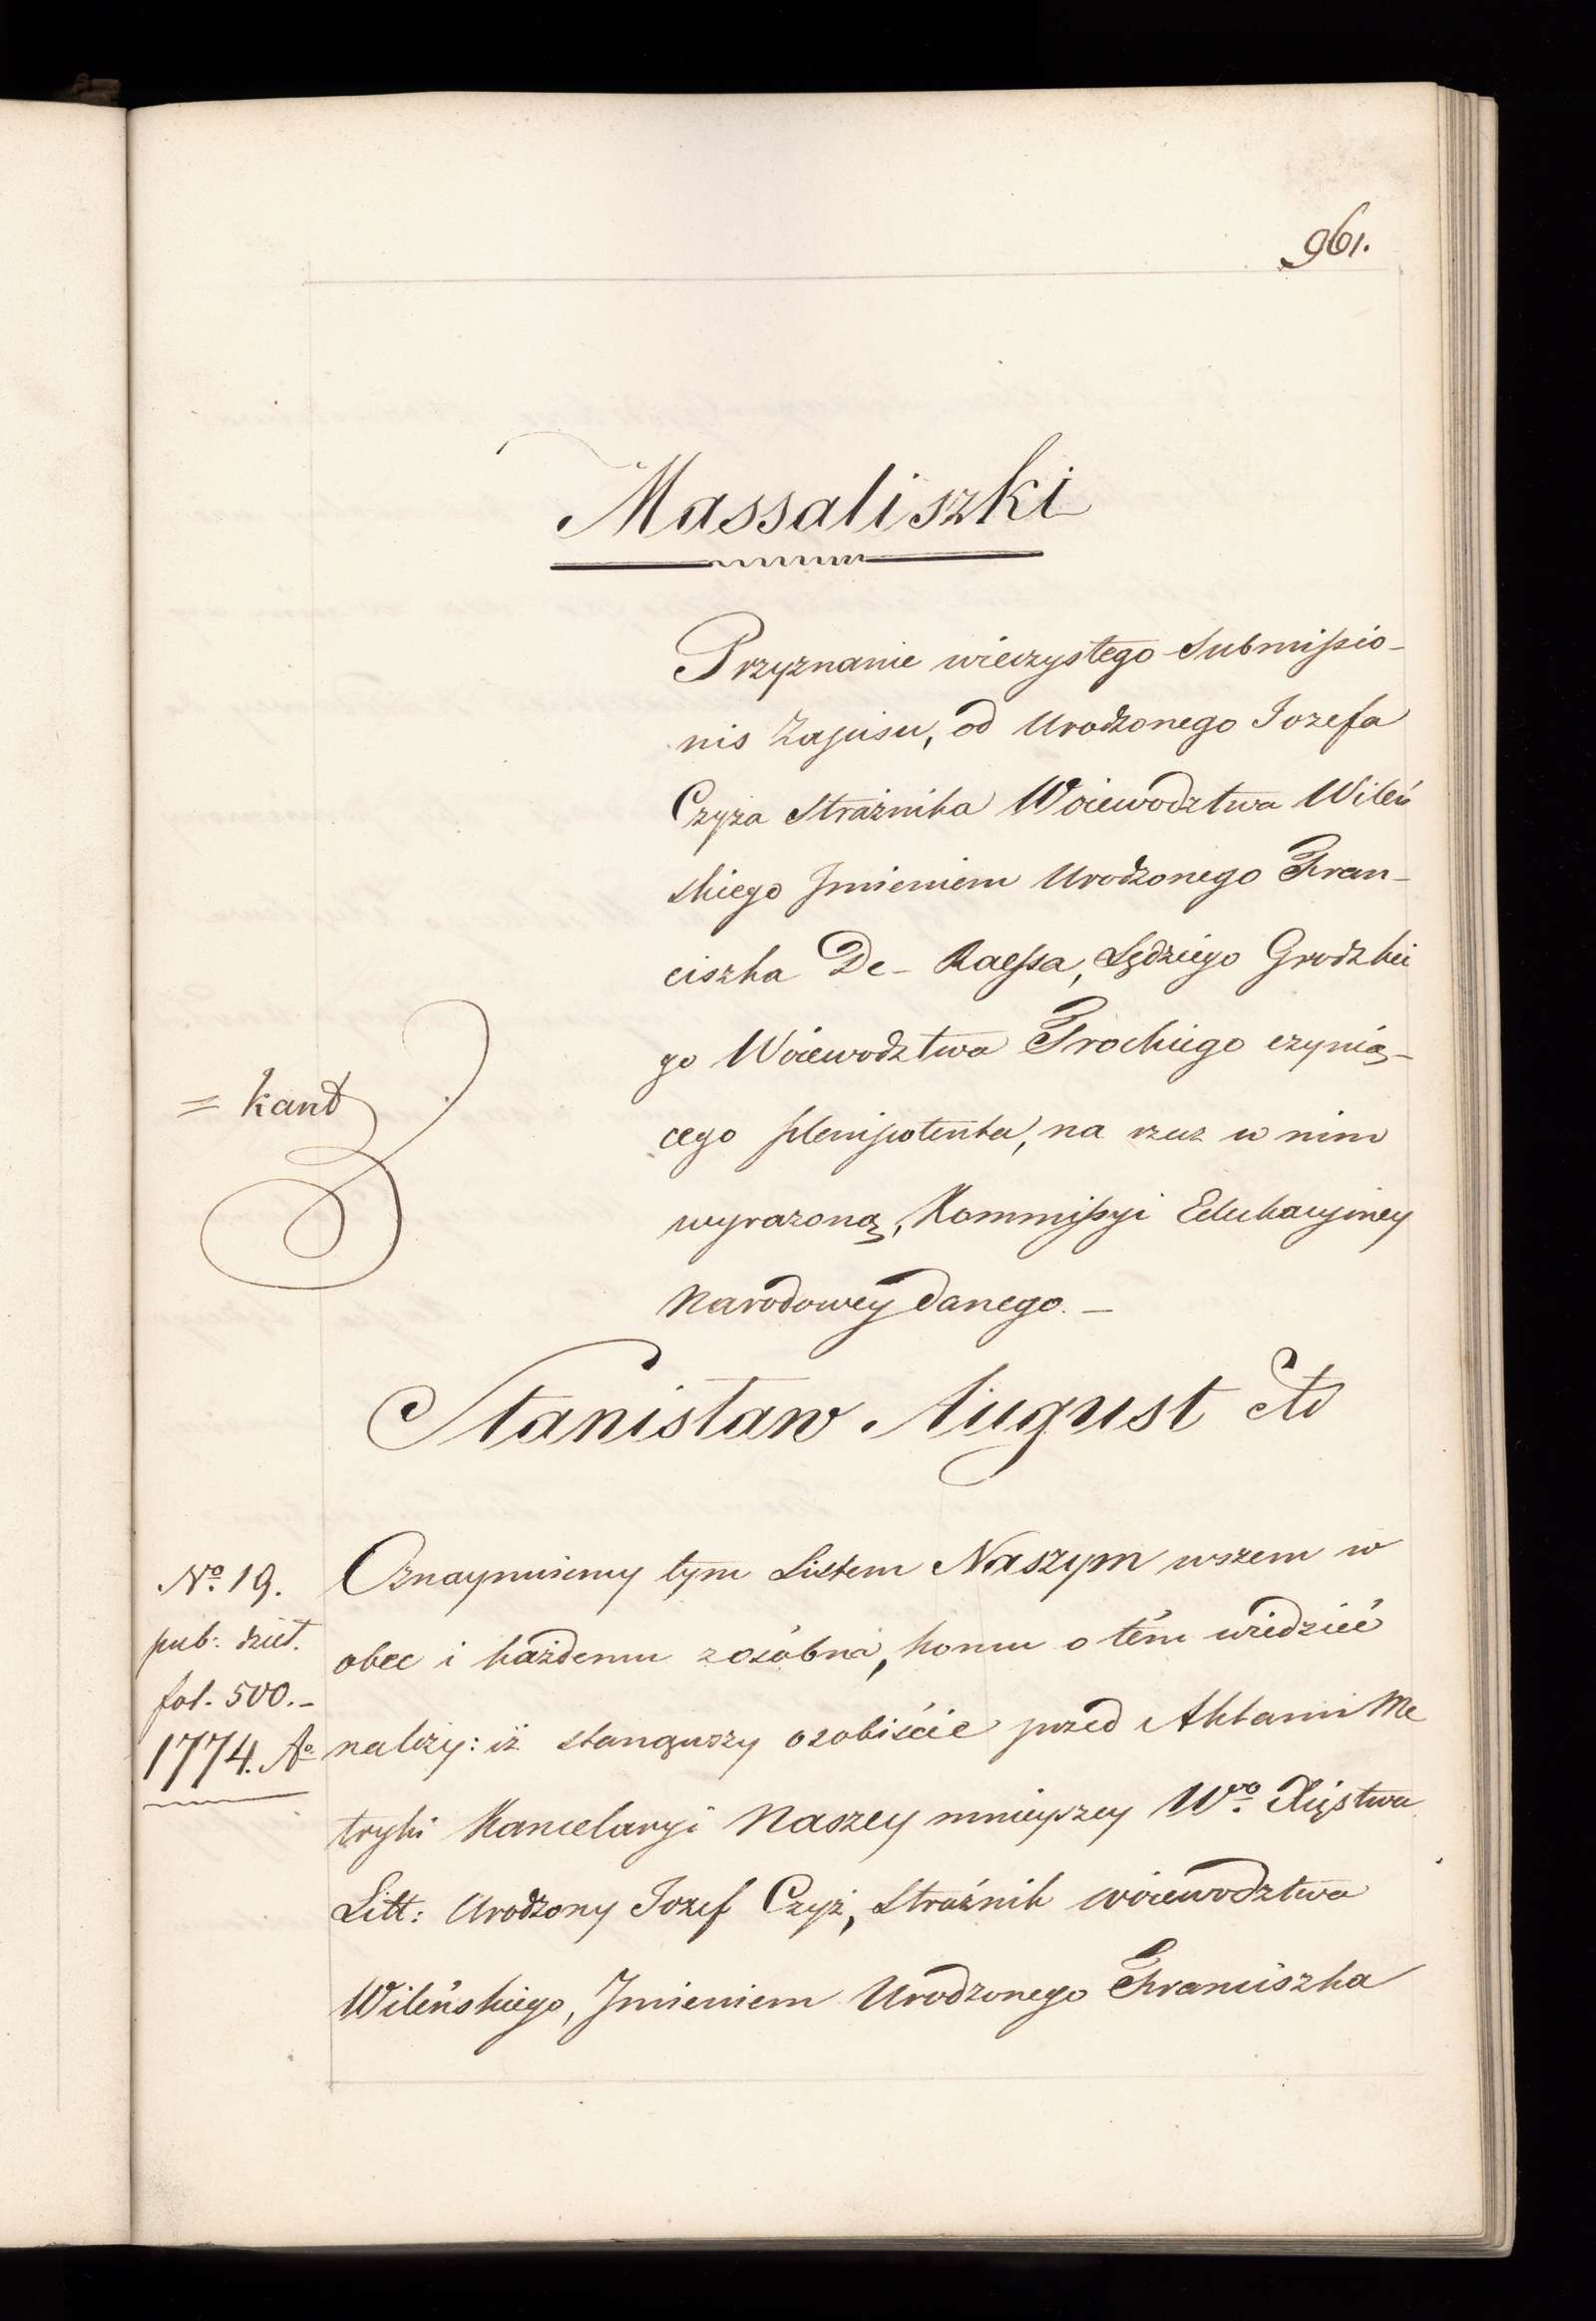 961.
Massaliszki
Przyznanie wieczystego Submissio-
nis Zapisu, od Urodzonego Jozefa
Czyża Strażnika Woiewodztwa Wileń
skiego Jmieniem Urodzonego Fran-
ciszka De-Raessa, Sędziego Grodzkie
go Woiewodztwa Trockiego czynią-
cego plenipotenta, na rzecz w nim
wyrazoną, Kommissyi Edukacyiney
Narodowey danego. -
= kant
Stanisław August etc
No. 19.
pub: dzieł.
fol. 500.-
1774. Ao
Oznaymuiemy tym Listem Naszym wszem w
obec i każdemu zosóbna, komu o tém wiedzieć
należy: iż stanąwszy osobiście przed Aktami Me
tryki Kancelaryi Naszey mnieyszey Wgo. Xięstwa
Litt: Urodzony Jozef Czyż, Strażnik woiewodztwa
Wileńskiego, Jmieniem Urodzonego Franciszka